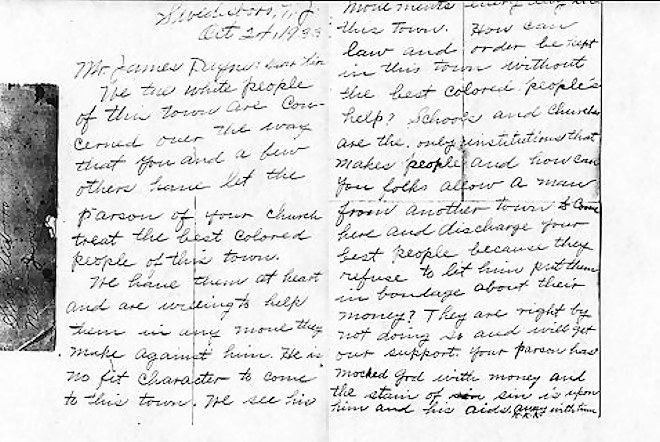 Swedesboro, N.J.
Oct 24, 1933
Mr. James Payne: Dear Sir
We the white people
of this town are con-
cerned over the way
that you and a few
others have let the
parson of your church
treat the best colored
people of this town.
We have them at heart
and are willing to help
them in any move they
make against him. He is
no fit character to come
to this town. We see his
movements every day in
this town. How can
law and order be kept
in this town without
the best colored people's
help? Schools and Churches
are the only institutions that
makes people and how can
you folks allow a man
from another town to come
here and discharge your
best people because they
refuse to let him put them
in bondage about their
money? They are right by
not doing so and will get
our support. Your parson has
mocked God with money and
the stain of sin is upon
him and his aids, away with him
K.K.K.